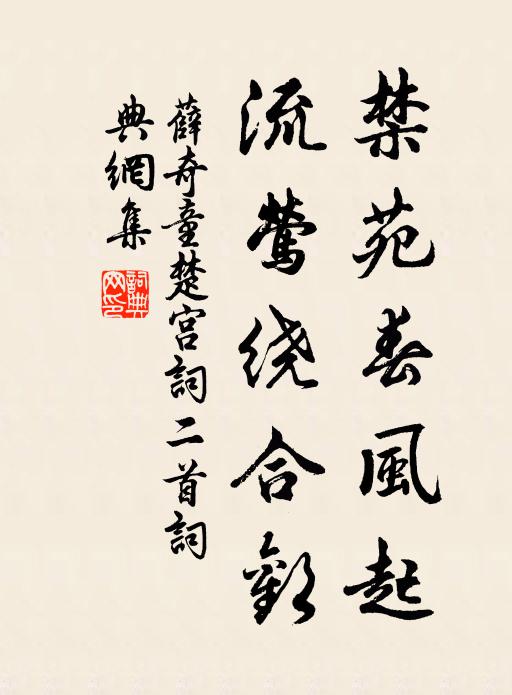 禁苑春風起
流莺绕合歡
薛奇童楚宫詞二首詞
典網集
詞典网印